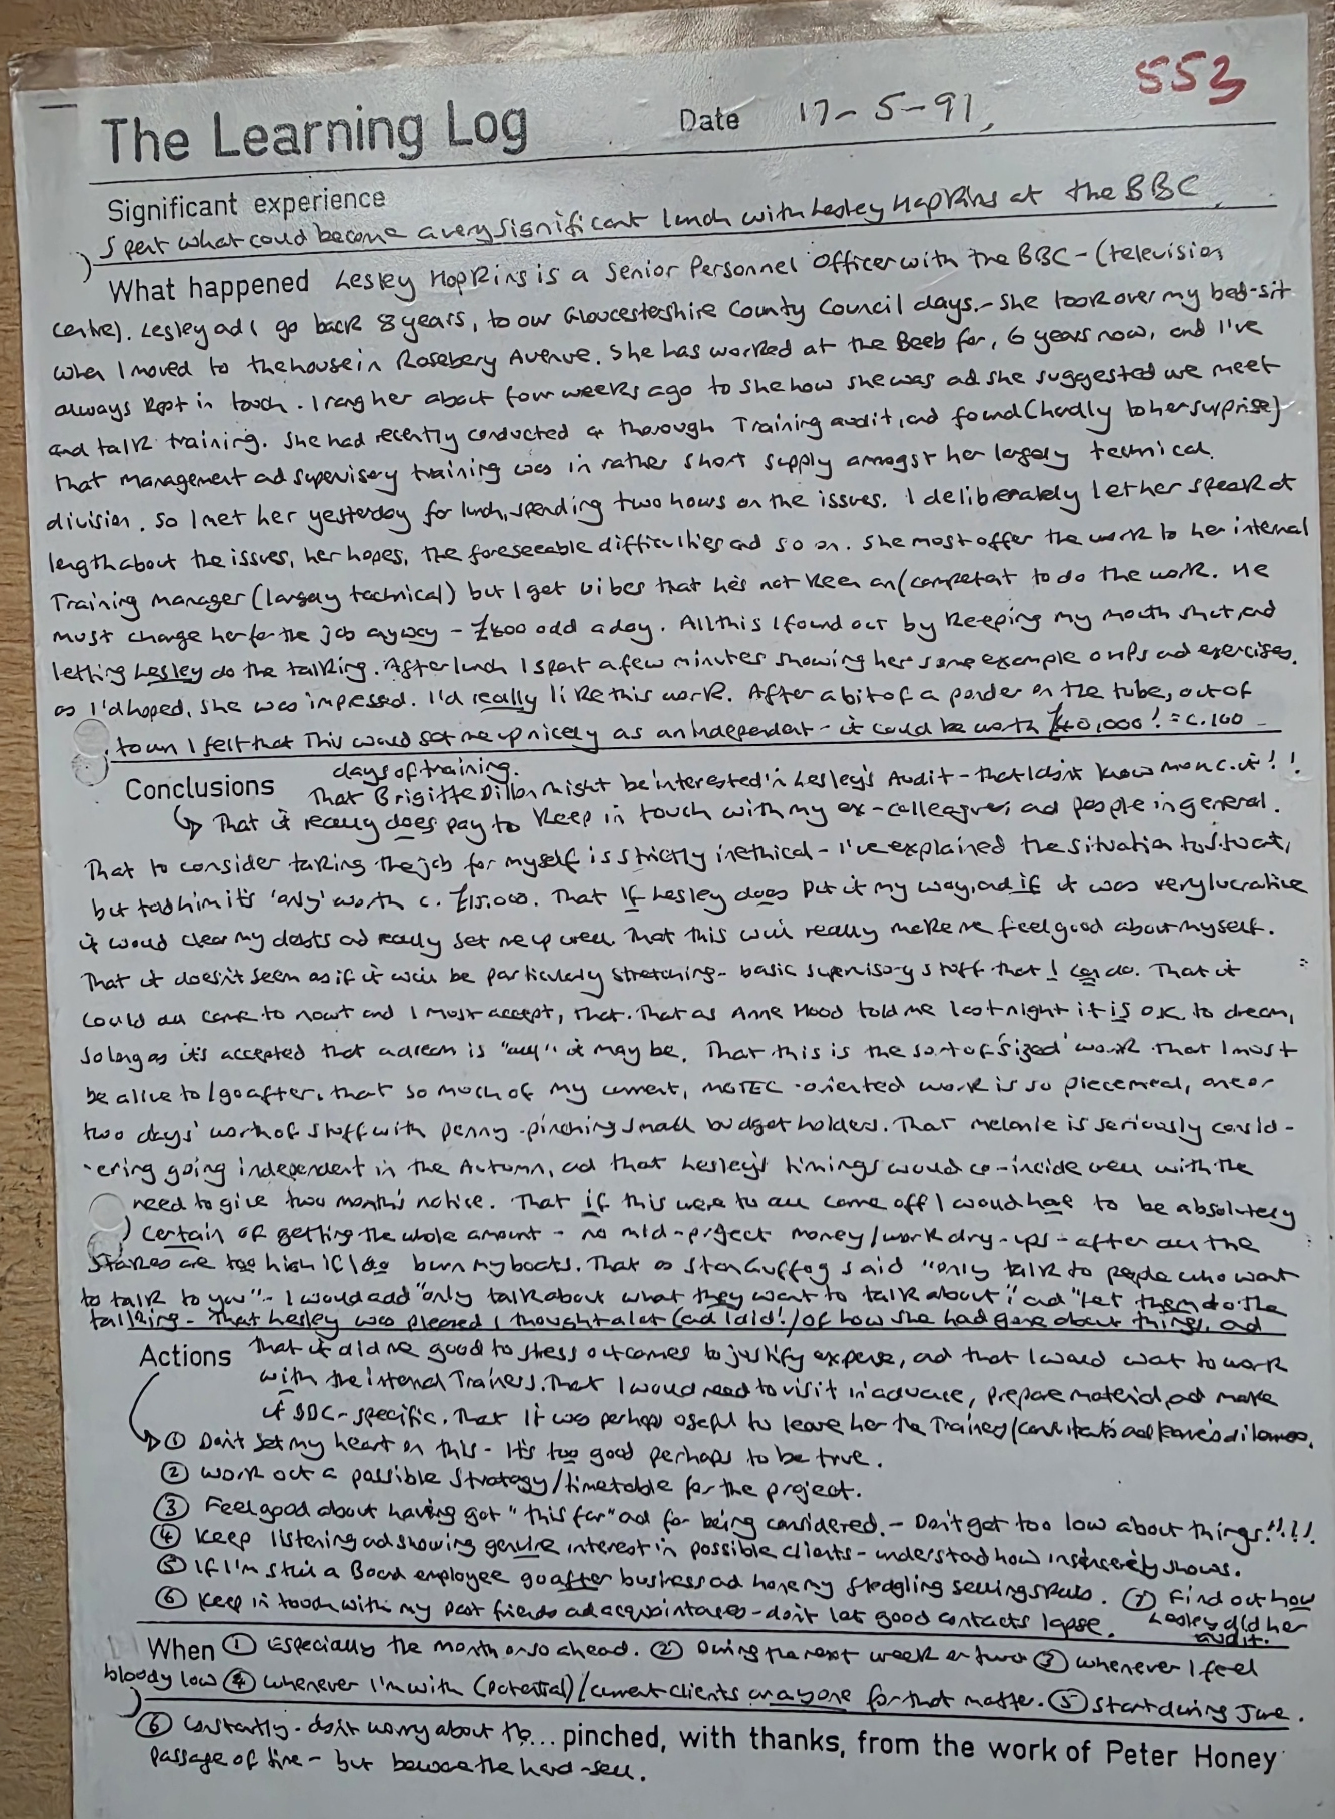 553
The Learning Log Date 17-5-91,
Significant experience
Spent what could become a very significant lunch with Lesley Hopkins at the BBC.
What happened Lesley Hopkins is a Senior Personnel Officer with the BBC - (television
centre). Lesley ad I go back 8 years, to our Gloucestershire County Council days. - She took over my bed-sit
when I moved to the house in Rosebery Avenue. She has worked at the Beeb for, 6 years now, and I've
always kept in touch. I rang her about four weeks ago to she how she was ad she suggested we meet
and talk training. She had recently conducted a thorough Training audit, and found (hardly to her surprise)
that management ad supervisory training was in rather short supply amongst her largely technical.
division. So I met her yesterday for lunch, spending two hours on the issues. I deliberately let her speak at
length about the issues, her hopes, the foreseeable difficulties ad so on. She must offer the work to her internal
Training manager (largely technical) but I get vibes that he's not keen on/competent to do the work. He
must charge her for the job anyway - odd a day. All this I found out by keeping my mouth shut, and
letting Lesley do the talking. After lunch I spent a few minutes showing her some example OHPs ad exercises.
as I'd hoped, she was impressed. I'd really like this work. After a bit of a ponder on the tube, out of
town I felt that this would set me up nicely as an Independent - it could be worth £40,000! = c.100
days of training.
Conclusions That Brigitte Dillon might be interested in Lesley's Audit - that I don't know more c. it!!
That it really does pay to keep in touch with my ex-colleagues, ad people in general.
That to consider taking the job for myself is strictly inethical - I've explained the situation to Stuart,
but told him it's 'only' worth c. £15,000. That If Lesley does put it my way, ad if it was very lucrative
it would clear my debts ad really set me up well. That this will really make me feel good about myself.
That it doesn't seem as if it will be particularly stretching - basic supervisory stuff that I can do. That it
could all come to nowt and I must accept, that. That as Anne Hood told me last night it is OK to dream,
so long as it's accepted that a dream is "all" it may be. That this is the sort of 'sized' work that I must
be alive to/go after. that so much of my current, MOTEC-oriented work is so piecemeal, one or
two days' work of stuff with penny-pinching small budget holders. That Melanie is seriously consid-
-ering going independent in the Autumn, ad that Lesley's timings would co-incide well with the
need to give two month's notice. That if this were to all come off I would have to be absolutely
certain of getting the whole amount - no mid-project money/work dry-ups - after all the
stakes are too high if I do burn my boats. That as Stan Guffog said "only talk to people who want
to talk to you" - I would add "only talk about what they want to talk about" ad "Let them do the
talking - That Lesley was pleased I thought a lot (ad said!) of how she had gone about things, ad
Actions That it did me good to stress outcomes to justify expense, ad that I would want to work
with the internal Trainers. That I would need to visit in advance, prepare material, ad make
it BBC-specific. That it was perhaps useful to leave her the Trainer/Consultants dilemma.
① Don't set my heart on this - It's too good perhaps to be true.
② Work out a possible strategy/timetable for the project.
③ Feel good about having got "this far" ad for being considered. - Don't get too low about things!!!!
④ Keep listening ad showing genuine interest in possible clients - understand how insincerity shows.
⑤ If I'm still a Board employee go after business ad hone my fledgling selling skills. ⑦ Find out how
⑥ Keep in touch with my past friends ad acquaintances - don't let good contacts lapse. Lesley did her
audit.
When ① Especially the month or so ahead. ② During the next week or two ③ whenever I feel
bloody low ④ Whenever I'm with (potential)/current clients or anyone for that matter. ⑤ Start during June.
⑥ Constantly - don't worry about the ... pinched, with thanks, from the work of Peter Honey
passage of time - but beware the hard-sell.